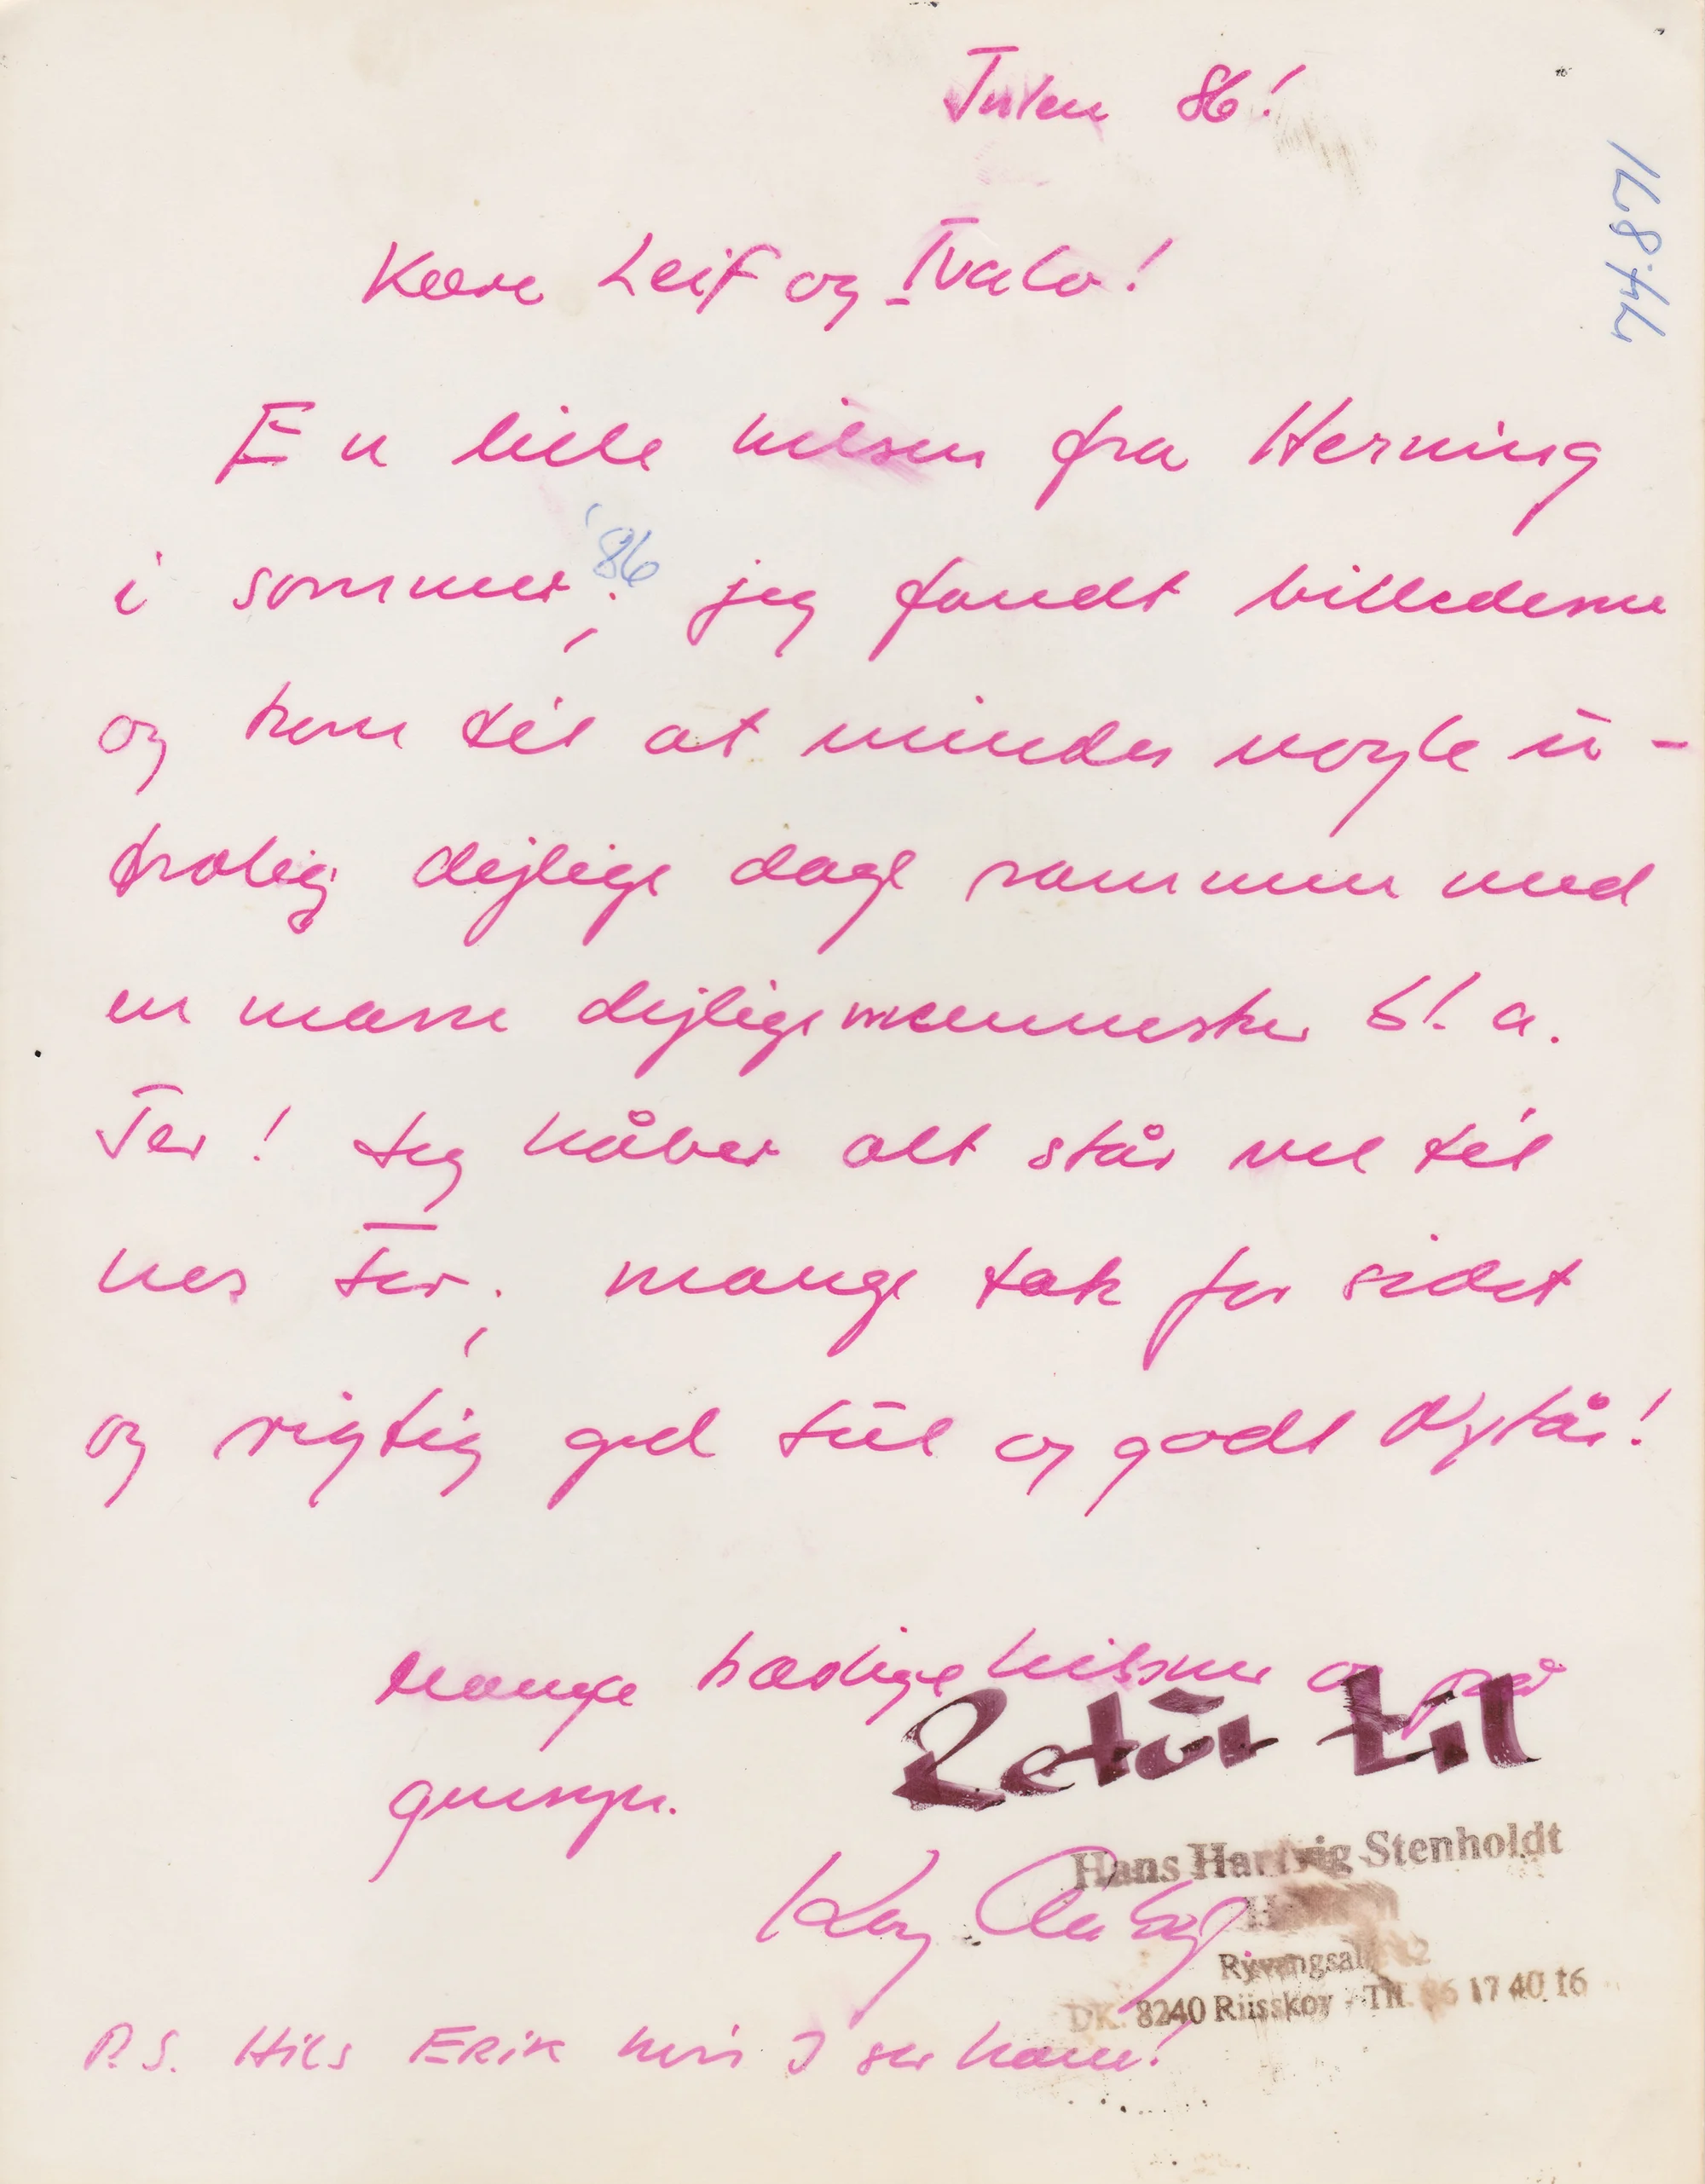 Julen 86!
17.87.47
Kære Leif og Ivalo!
En lille hilsen fra Herning
i sommer, '86 jeg fandt billederne
og kom til at mindes nogle u-
trolig dejlige dage sammen med
en masse dejlige mennesker bl. a.
Jer! Jeg håber alt står vel til
hos Jer, mange tak for sidst
og rigtig god Jul og godt Nytår!
Mange kærlige hilsner og på
gensyn.
Retur til
Hans Hartvig Stenholdt
Kaj
DK. 8240 Riisskov - Tlf. 86 17 40 16
P.S. Hils Erik hvis I ser ham!